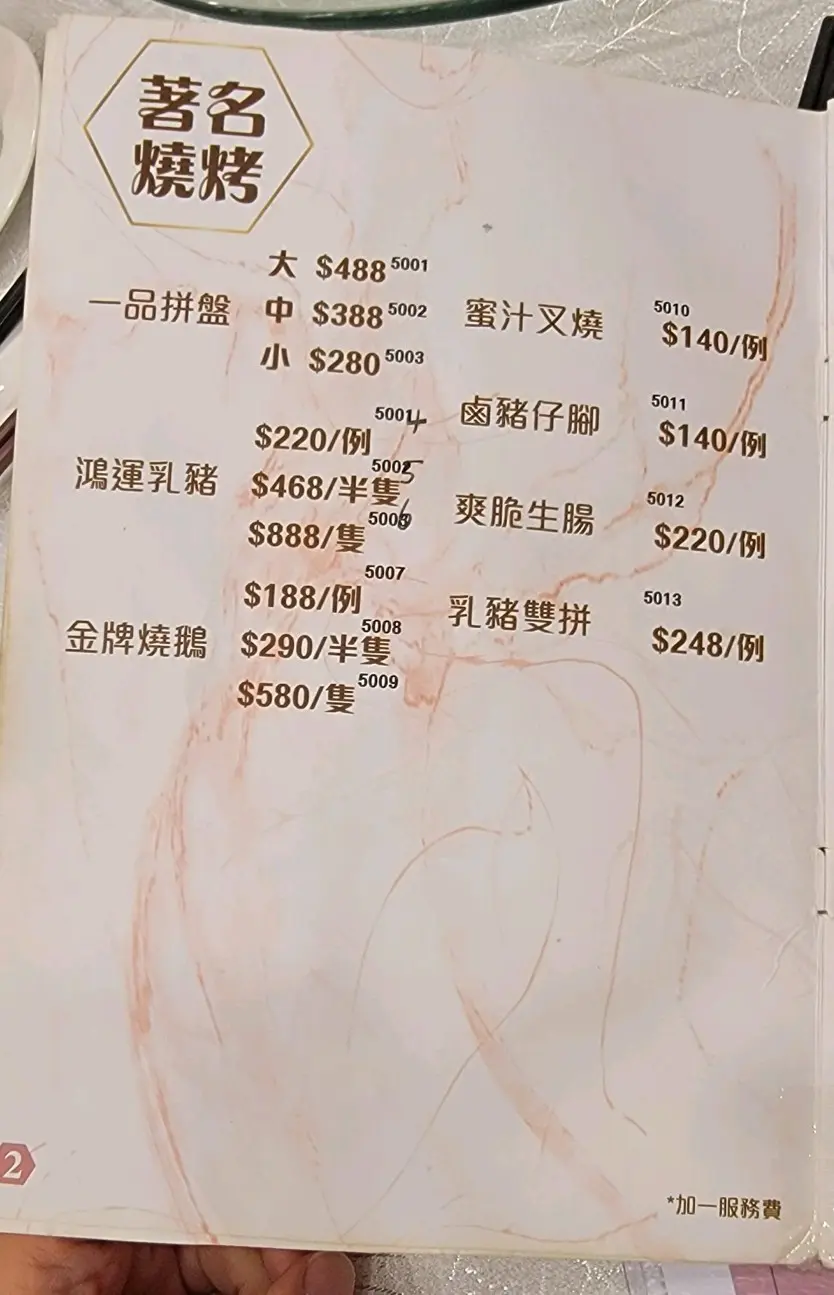 著名
燒烤
大 $488 5001
一品拼盤 中 $388 5002
小 $280 5003
$220/例 5004
鴻運乳豬 $468/半隻 5005
$888/隻 5006
$188/例 5007
金牌燒鵝 $290/半隻 5008
$580/隻 5009
蜜汁叉燒 $140/例 5010
鹵豬仔腳 $140/例 5011
爽脆生腸 $220/例 5012
乳豬雙拼 $248/例 5013
2
*加一服務費